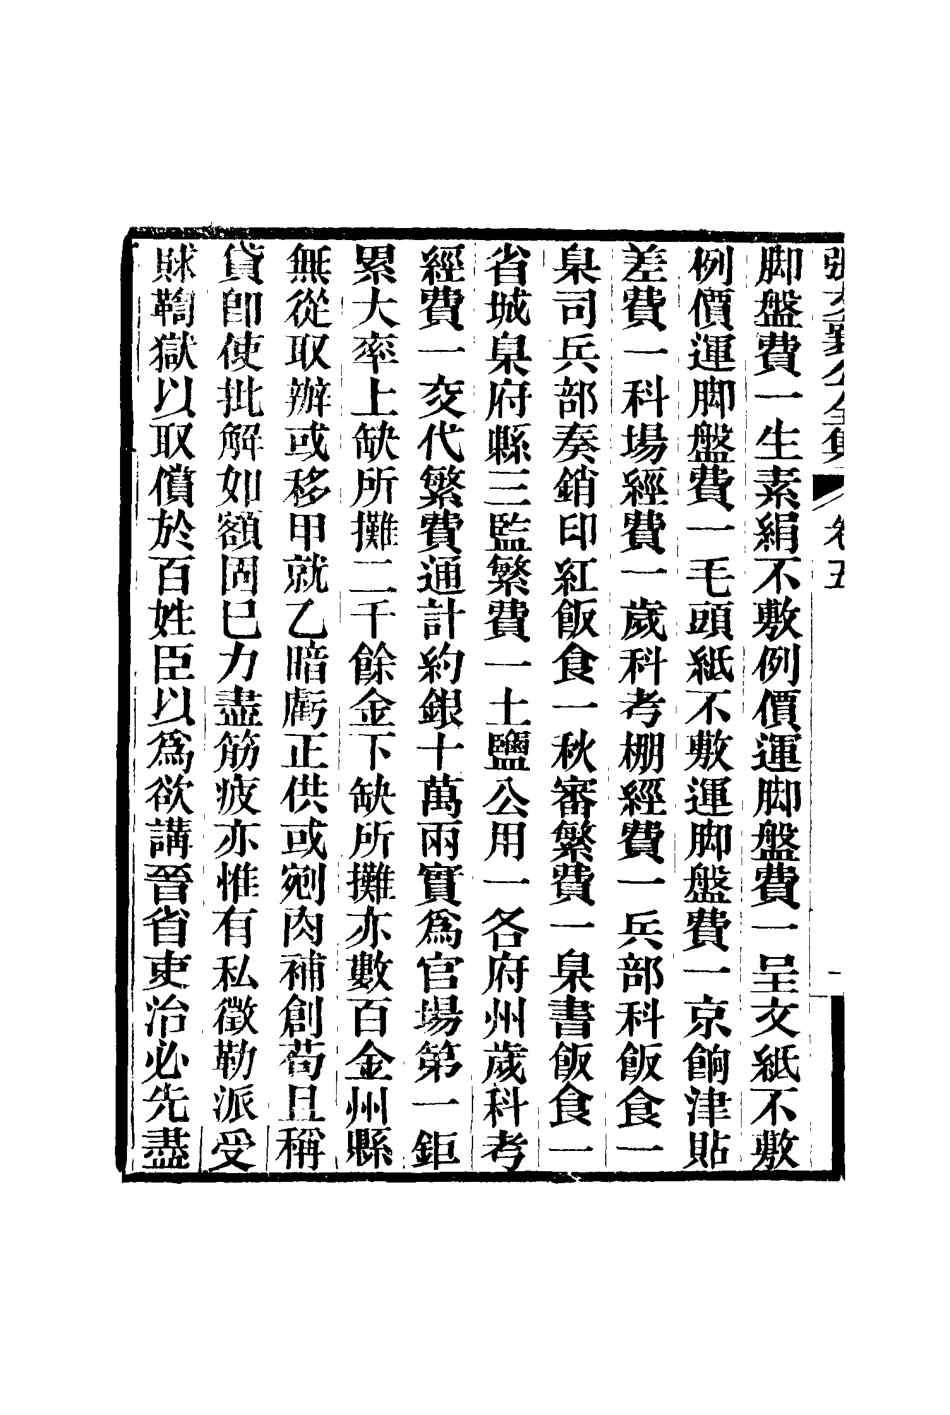 張文襄公全集 卷五
脚盤費一生素絹不敷例價運脚盤費一呈文紙不敷
例價運脚盤費一毛頭紙不敷運脚盤費一京餉津貼
差費一科場經費一歲科考棚經費一兵部科飯食一
臬司兵部奏銷印紅飯食一秋審繁費一臬書飯食一
省城臬府縣三監繁費一土鹽公用一各府州歲科考
經費一交代繁費通計約銀十萬兩實爲官場第一鉅
累大率上缺所攤二千餘金下缺所攤亦數百金州縣
無從取辦或移甲就乙暗虧正供或剜肉補創苟且稱
貸卽使批解如額固巳力盡筋疲亦惟有私徵勒派受
賕鞫獄以取償於百姓臣以爲欲講晉省吏治必先盡